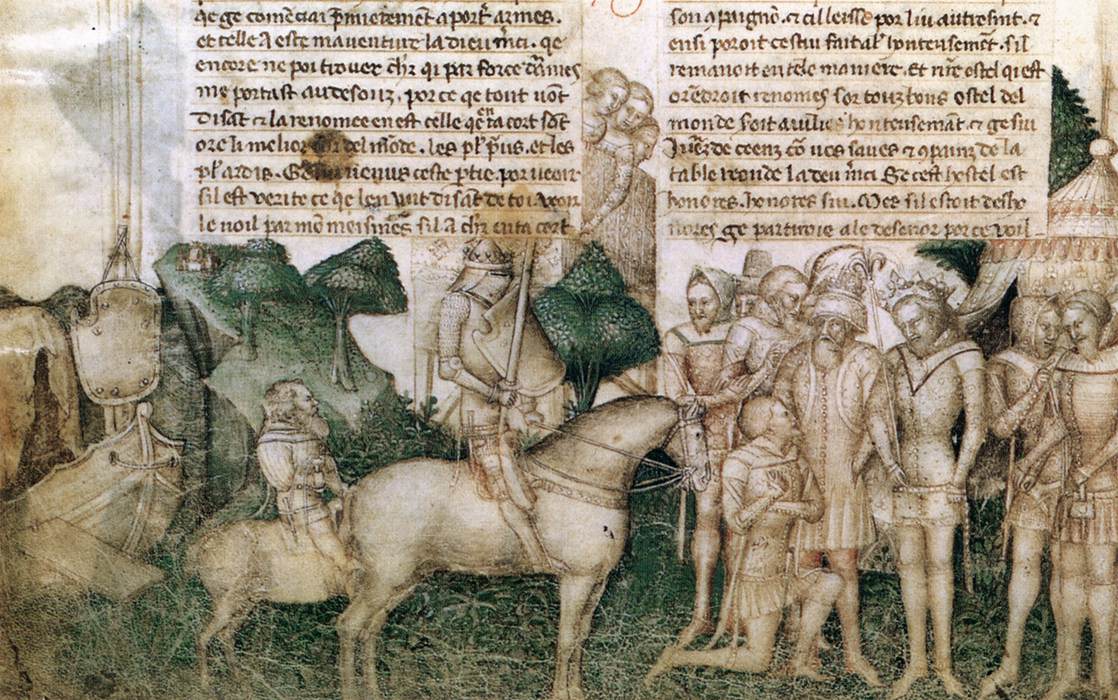 qe ge comẽcai p̃mieremẽt aport̃ armes.
et celle A este mauenture la dieu m̃ci. qe
encore ne poi trouer ch̃r qi par force darmes
me portast au desouz. por ce qe tout uõt
disãt & la renomee en est celle qe a ta cort sõt
ore li melior del mõde. les pl᷒ p̃us. et les
pl᷒ ardis. uenus ceste p̃tie. por ueoir
sil est uerite ce qe len uait disãt de toi. ueoir
le uoil par mẽ meismes sil A ch̃r en ta cort
son ꝯpaignõ. & cil leisse por lui autresint. &
ensi poroit cestui fait al honteusemẽt. sil
remanoit en tele maniere. Et nr̃e ostel qi est
orẽdroit renomes sor touz bons ostel del
monde soit auilies honteusemãt. & ge sui
de ceenz cõ uos saues & ꝯpainz de la
table reonde la deu m̃ci Se cest hostel est
honores. honores sui. Mes sil estoit desho
nores ge partiroie a le desenor por ce uoil